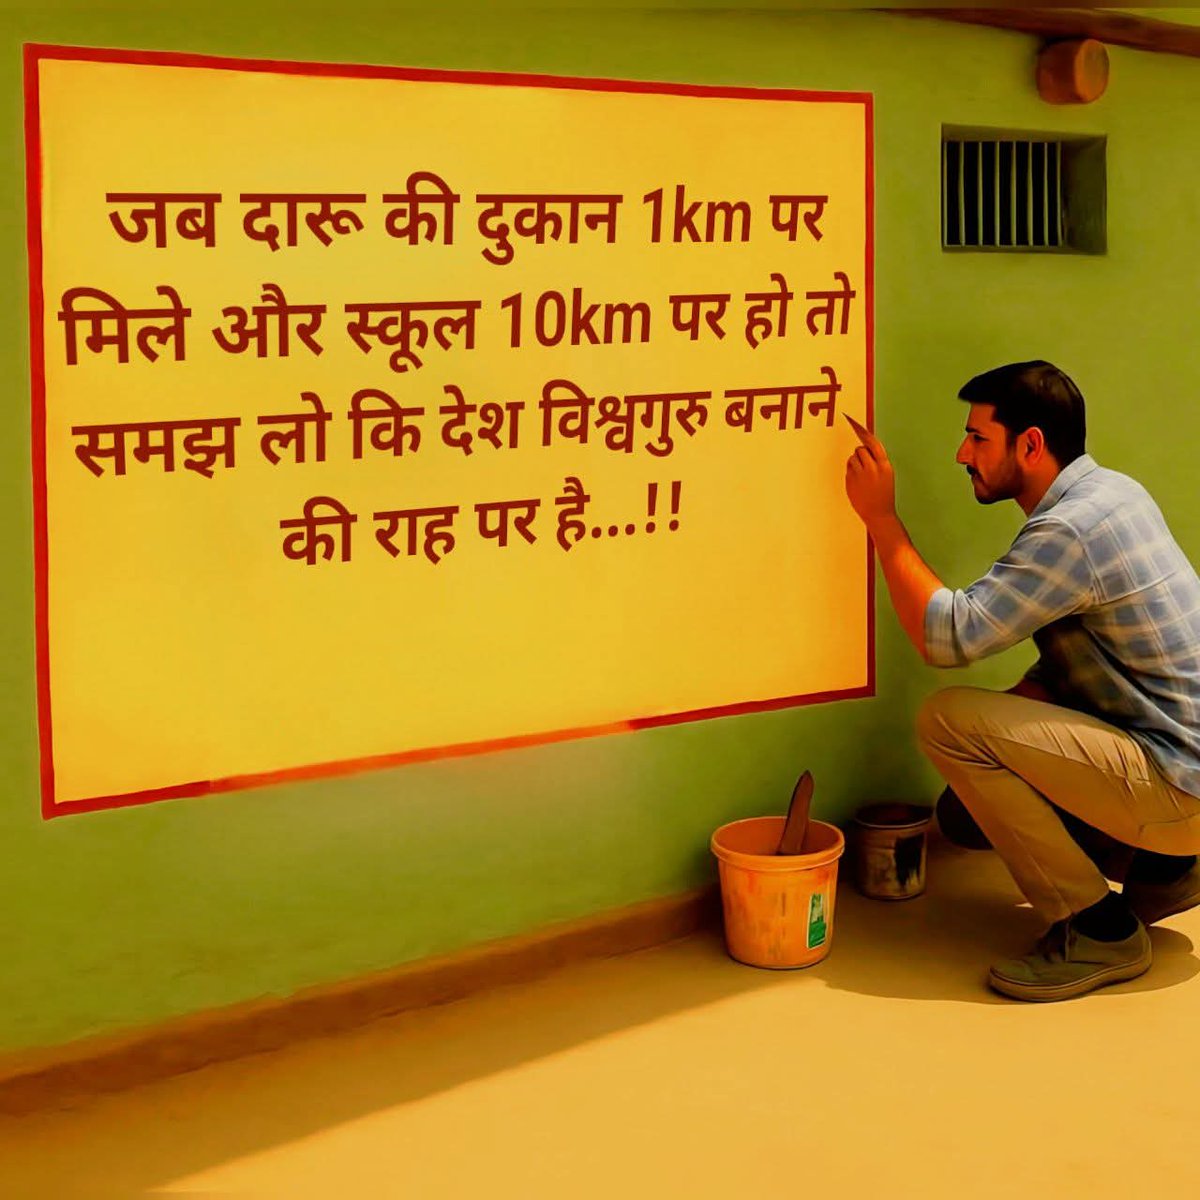 जब दारू की दुकान 1km पर
मिले और स्कूल 10km पर हो तो
समझ लो कि देश विश्वगुरु बनाने
की राह पर है...!!